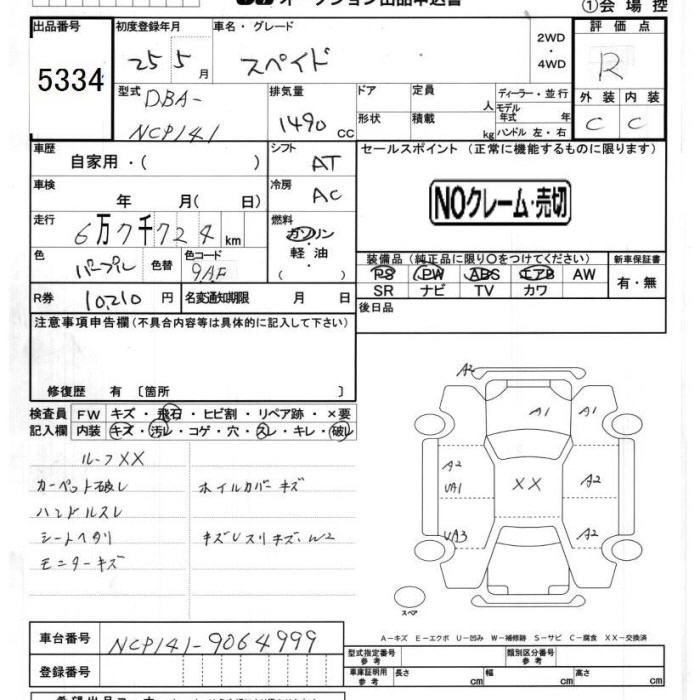 オークション出品申込書
①会場控
出品番号 5334
初度登録年月 25 5月
車名・グレード スペイド
2WD・4WD
評価点 R
外装 内装
C C
型式 DBA-NCP141
排気量 1490 cc
ドア 形状
定員 人
積載 kg
ディーラー・並行
モデル年式 年
ハンドル 左・右
車歴 自家用・( )
シフト AT
セールスポイント (正常に機能するものに限ります)
車検 年 月( 日)
冷房 AC
NOクレーム・売切
走行 6万7千724km
燃料 ガソリン・軽油・( )
色 パープル 色替 色コード 9AF
装備品 (純正品に限り〇をつけてください)
新車保証書
PS PW ABS エアB AW
SR ナビ TV カワ
有・無
R券 10,210円
名変通知期限 月 日
後日品
注意事項申告欄(不具合内容等は具体的に記入して下さい)
修復歴 有〔箇所 〕
検査員記入欄
FW キズ・飛石・ヒビ割・リペア跡・×要
内装 キズ・汚レ・コゲ・穴・スレ・キレ・破レ
ルーフXX
カーペット破レ ホイルカバーキズ
ハンドルスレ
シートヘタリ キズUスリキズ、W2
モニターキズ
A2
A1 A1
A2
UA1
XX
A2
UA3
A2
スペア
A-キズ E-エクボ U-凹み W-補修跡 S-サビ C-腐食 XX-交換済
車台番号 NCP141-9064999
登録番号
型式指定番号 参考
類別区分番号 参考
車庫証明用 参考 長さ cm 幅 cm 高さ cm